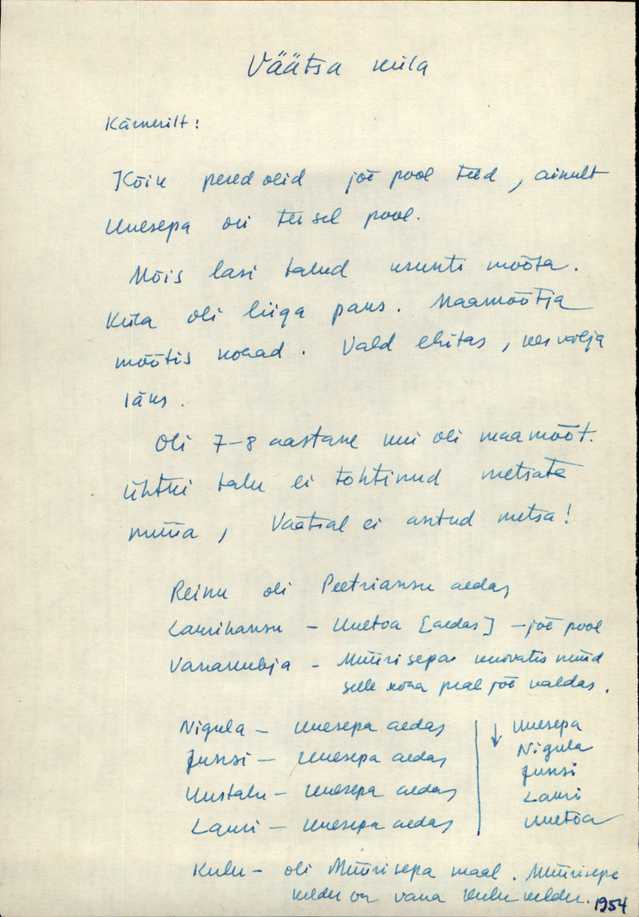 Väätsa küla
Kärnerilt:
Kõik pered olid jõe pool teed, ainult
Uuesepa oli teisel pool.
Mõis lasi talud uuesti mõõta.
Küla oli liiga paks. Maamõõtja
mõõtis kohad. Vald ehitas, kes välja
läks.
Oli 7-8 aastane kui oli maamõõt.
Ühtki talu ei tohtinud metsata
müüa, Väätsal ei antud metsa!
Reinu oli Peetriansu aedas
Laurihansu - Uuetoa [aedas] - jõe pool
Vanakubja - Müürisepa nüüd
selle koha peal jõe kaldas.
Nigula - Uuesepa aedas
Junsi - Uuesepa aedas
Uustalu - Uuesepa aedas
Lauri - Uuesepa aedas
↓ Uuesepa
Nigula
Junsi
Lauri
Uuetoa
Kulu - oli Müürisepa maal. Müürisepa
kelder on vana Kulu kelder.
1954